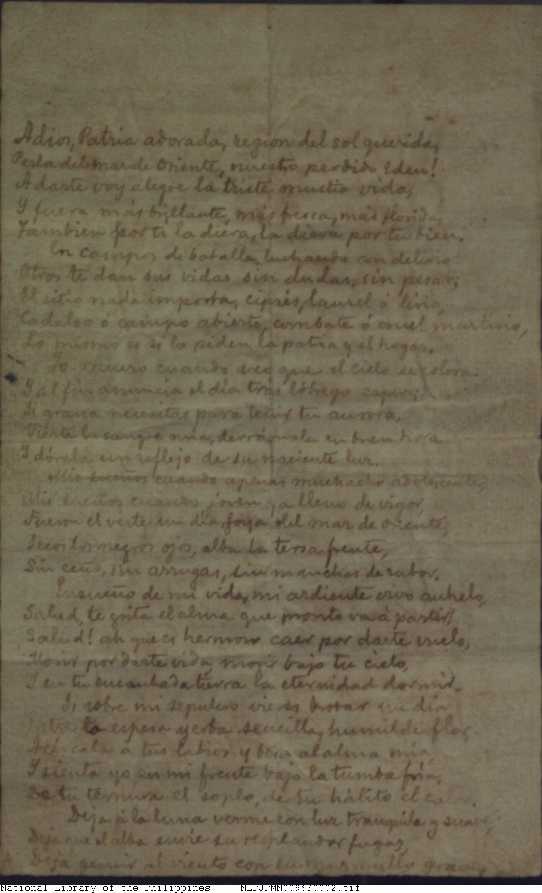 Adios, Patria adorada, region del sol querida,
Perla del mar de Oriente, nuestro perdido Eden!
A darte voy alegre la triste mustia vida,
Y fuera más brillante, más fresca, más florida,
Tambien por ti la diera, la diera por tu bien.
En campos de batalla, luchando con delirio
Otros te dan sus vidas sin dudas, sin pesar;
El sitio nada importa, ciprés, laurel ó lirio,
Cadalso ó campo abierto, combate ó cruel martirio,
Lo mismo es si lo piden la patria y el hogar.
Yo muero cuando veo que el cielo se colora
Y al fin anuncia el día tras lóbrego capuz;
Si grana necesitas para teñir tu aurora,
Vierte la sangre mía, derrámala en buen hora
Y dórela un reflejo de su naciente luz.
Mis sueños cuando apenas muchacho adolescente,
Mis sueños cuando joven ya lleno de vigor,
Fueron el verte un día, joya del mar de oriente,
Secos los negros ojos, alta la tersa frente,
Sin ceño, sin arrugas, sin manchas de rubor.
Ensueño de mi vida, mi ardiente vivo anhelo,
Salud, te grita el alma que pronto va á partir!
Salud! ah que es hermoso caer por darte vuelo,
Morir por darte vida, morir bajo tu cielo,
Y en tu encantada tierra la eternidad dormir.
Si sobre mi sepulcro vieres brotar un día
Entre la espesa yerba sencilla, humilde flor
Acércala a tus labios y besa al alma mía,
Y sienta yo en mi frente bajo la tumba fría,
De tu ternura el soplo, de tu hálito el calor.
Deja á la luna verme con luz tranquila y suave;
Deja que el alba envíe su resplandor fugaz,
Deja gemir al viento con su murmullo grave,
National Library of the Philippines